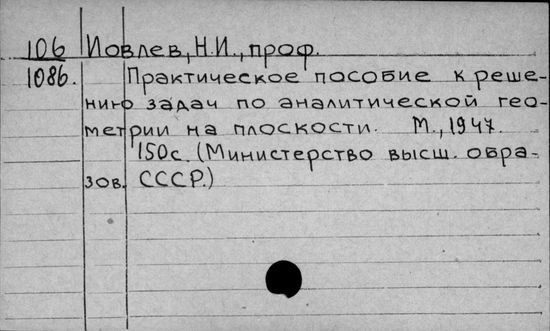 106 Иовлев, Н.И., проф.
1086. Практическое пособие к реше-
нию задач по аналитической гео-
метрии на плоскости. М., 1947.
150с. (Министерство высш. обра-
зов. СССР.)